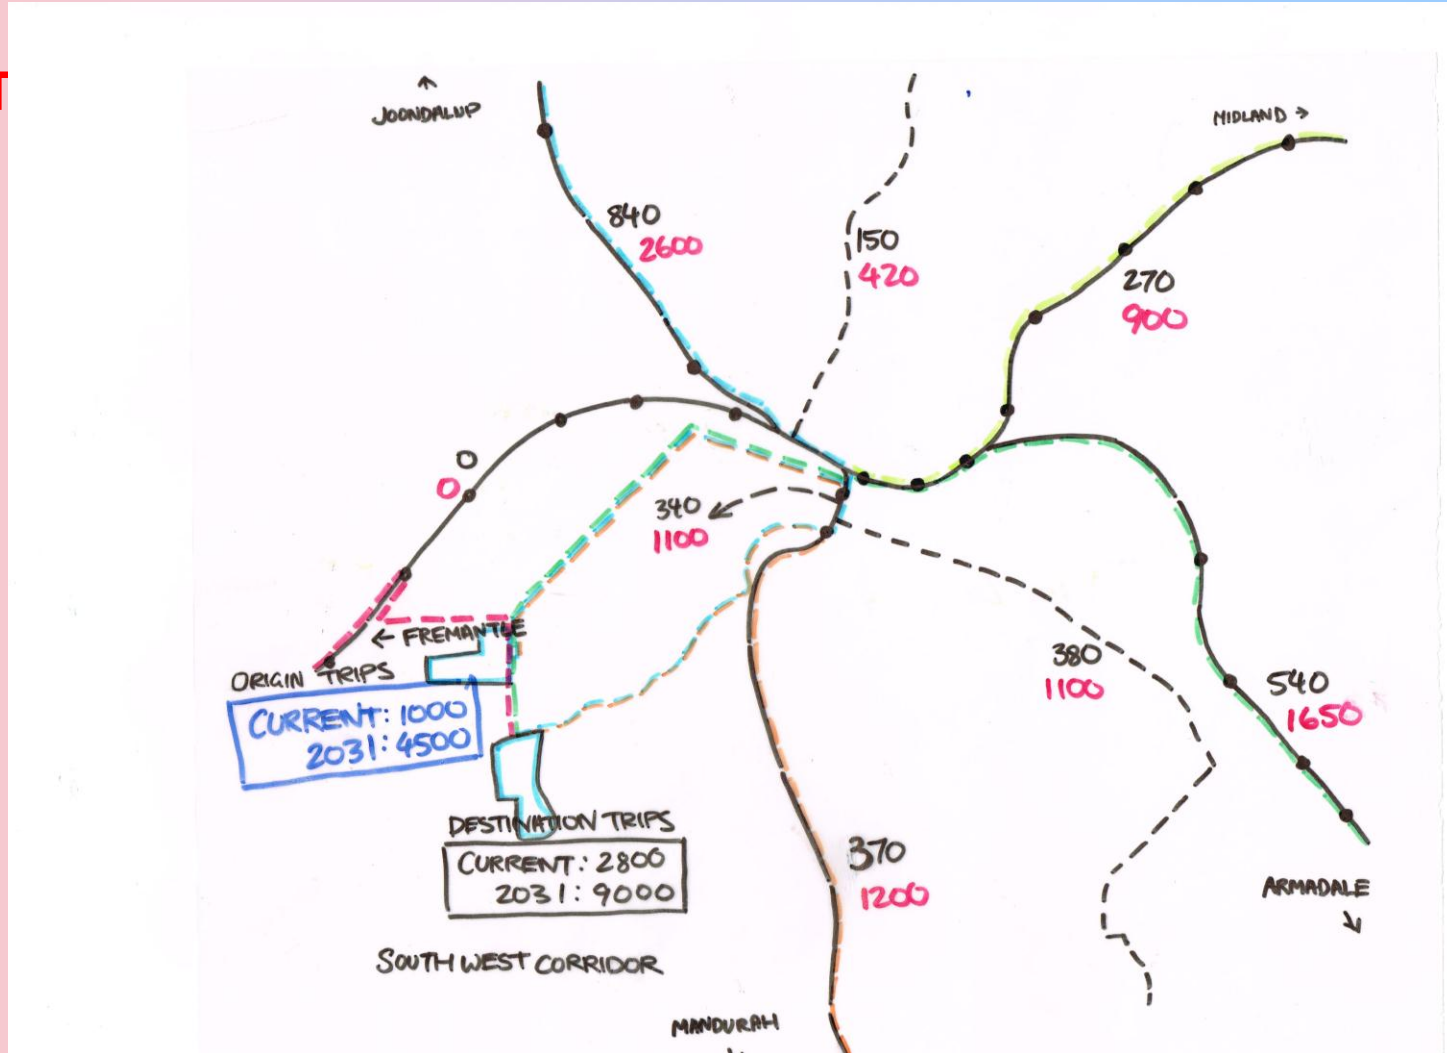 JOONDALUP
MIDLAND
840
2600
150
420
270
900
0
0
340
1100
FREMANTLE
ORIGIN TRIPS
CURRENT: 1000
2031: 4500
380
1100
540
1650
DESTINATION TRIPS
CURRENT: 2800
2031: 9000
370
1200
ARMADALE
SOUTH WEST CORRIDOR
MANDURAH